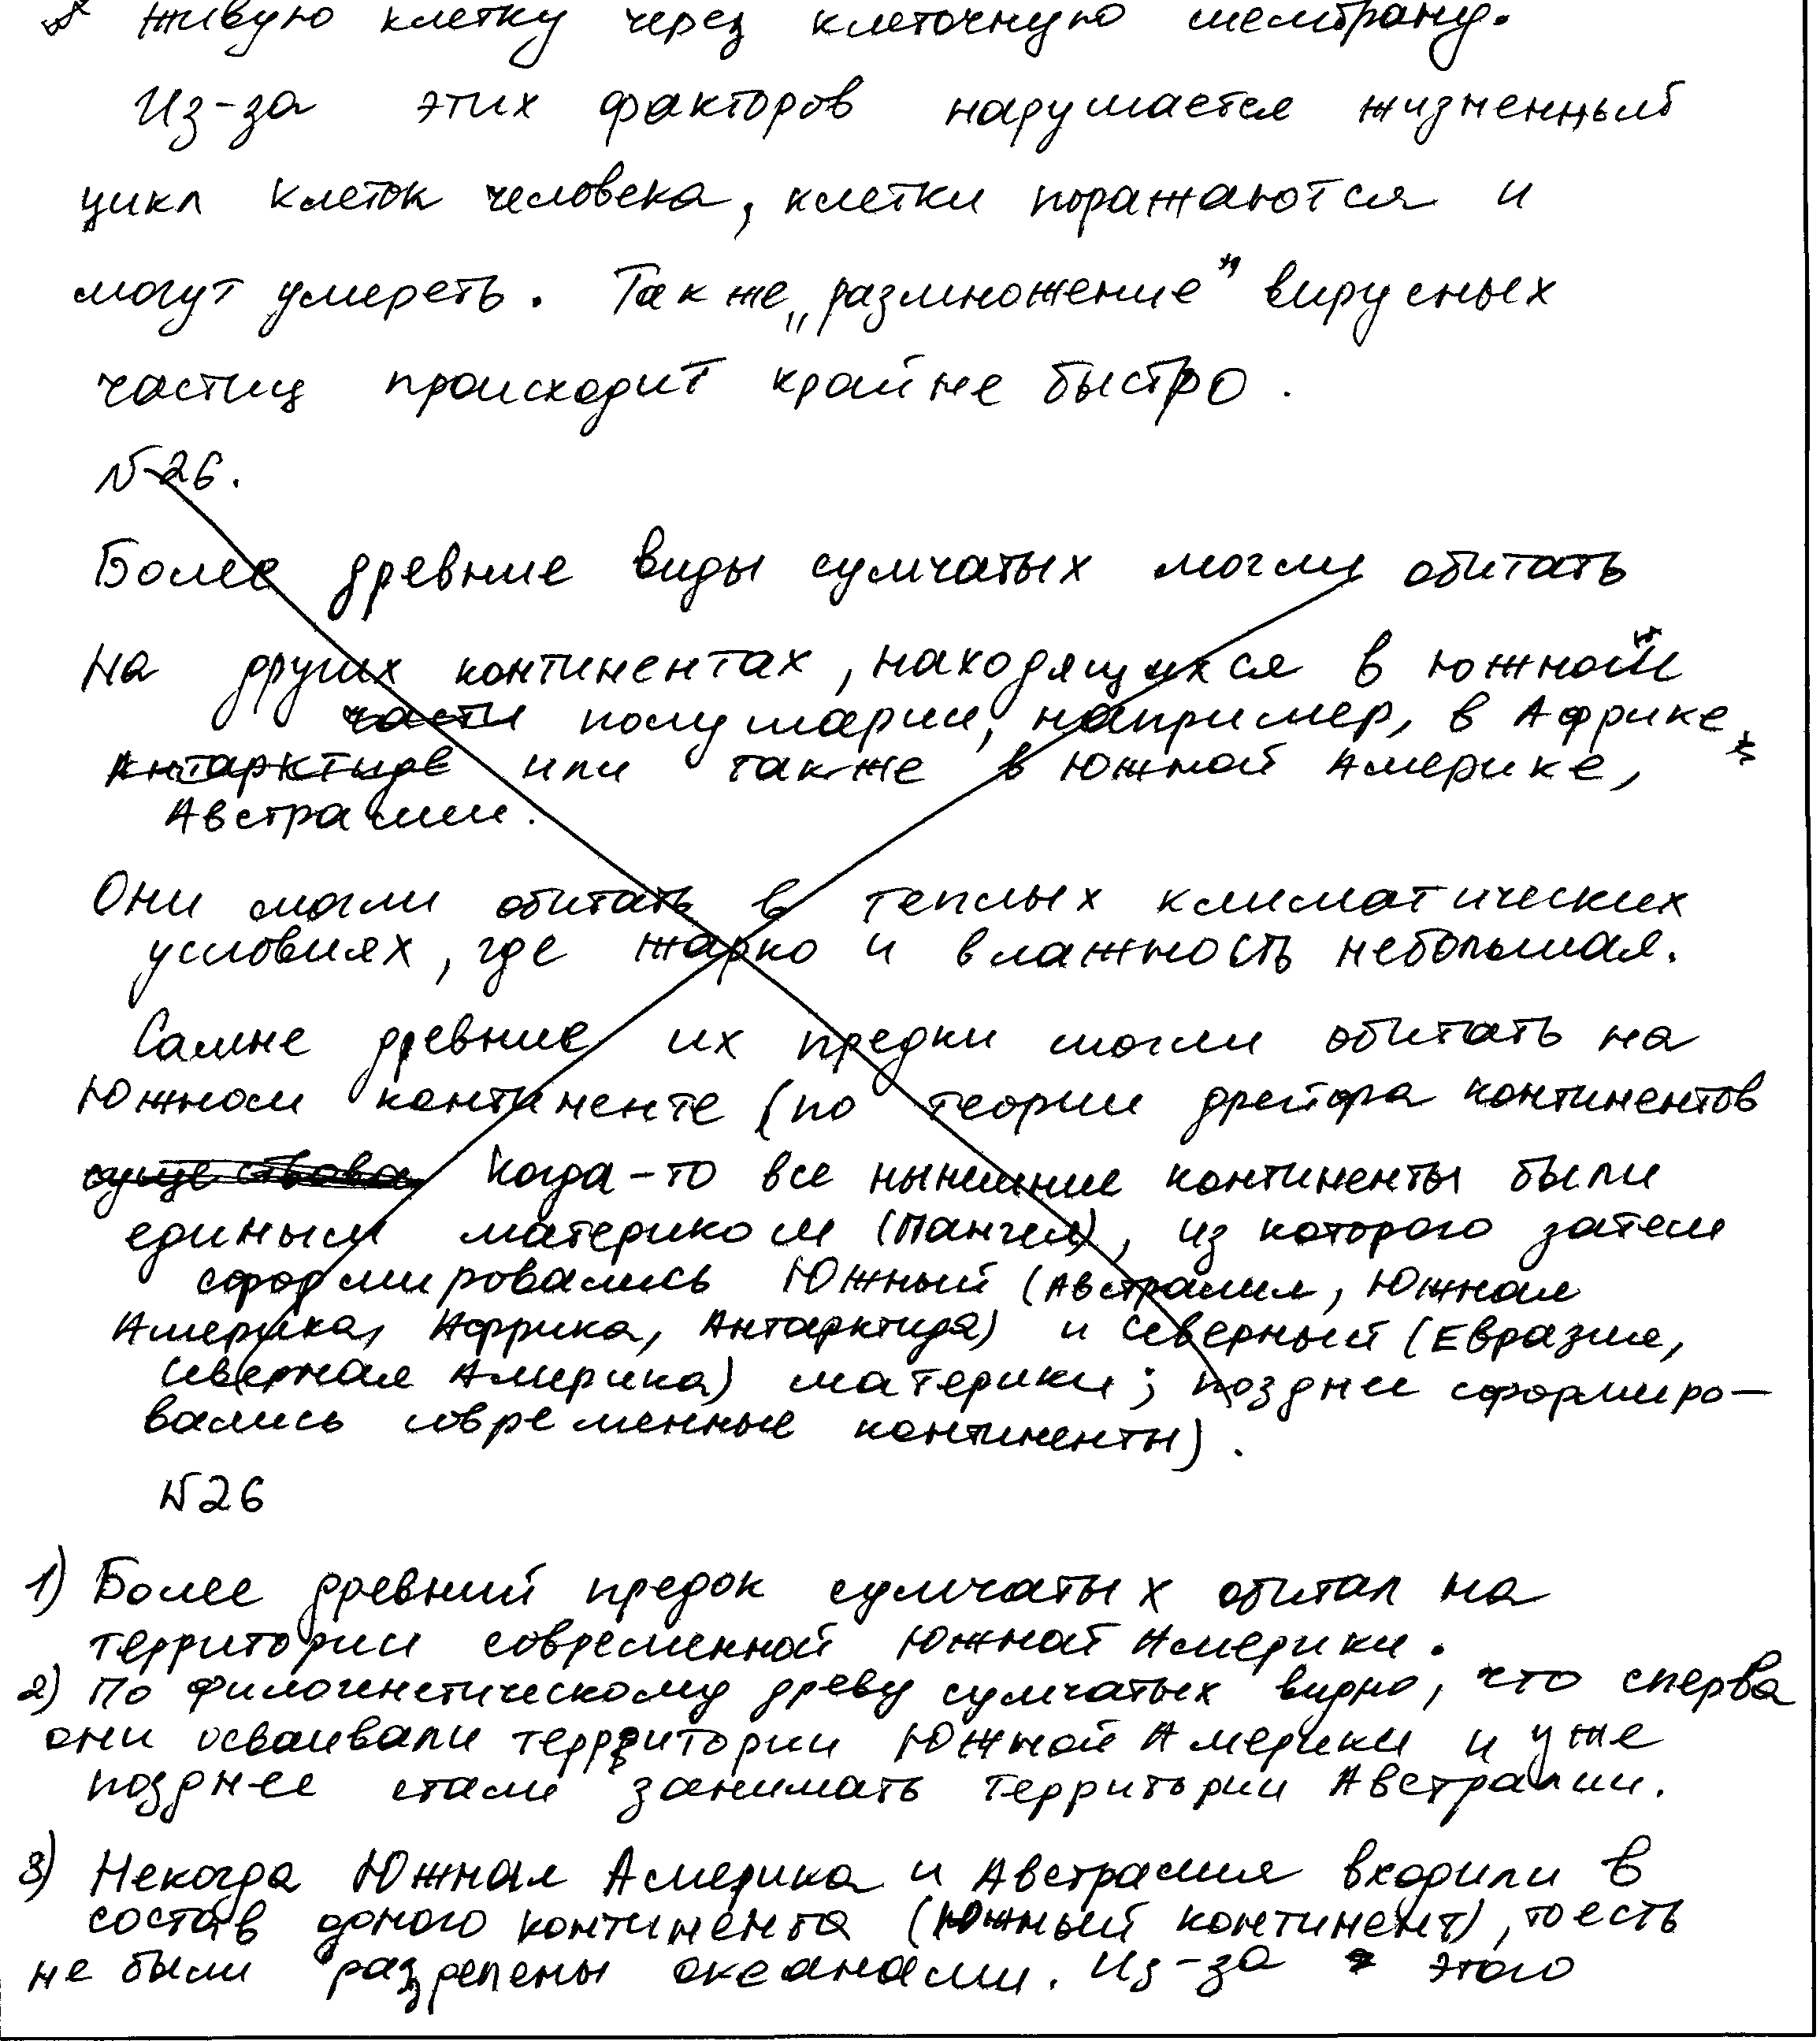 живую клетку через клеточную мембрану.
Из-за этих факторов нарушается жизненный
цикл клеток человека, клетки поражаются и
могут умереть. Также „размножение” вирусных
частиц происходит крайне быстро.
№26.
Более древние виды сумчатых могли обитать
на других континентах, находящихся в южной
части полушарии, например, в Африке,
Антарктиде или также в Южной Америке,
Австралии.
Они могли обитать в теплых климатических
условиях, где жарко и влажность небольшая.
Самые древние их предки могли обитать на
Южном континенте (по теории дрейфа континентов
существова когда-то все нынешние континенты были
единым материком (Пангея), из которого затем
сформировались Южный (Австралия, Южная
Америка, Африка, Антарктида) и Северный (Евразия,
Северная Америка) материки; позднее сформиро-
вались современные континенты).
№26
1) Более древний предок сумчатых обитал на
территории современной Южной Америки.
2) По филогенетическому древу сумчатых видно, что сперва
они осваивали территории Южной Америки и уже
позднее стали занимать территории Австралии.
3) Некогда Южная Америка и Австралия входили в
состав одного континента (Южный континент), то есть
не были разделены океанами. Из-за этого